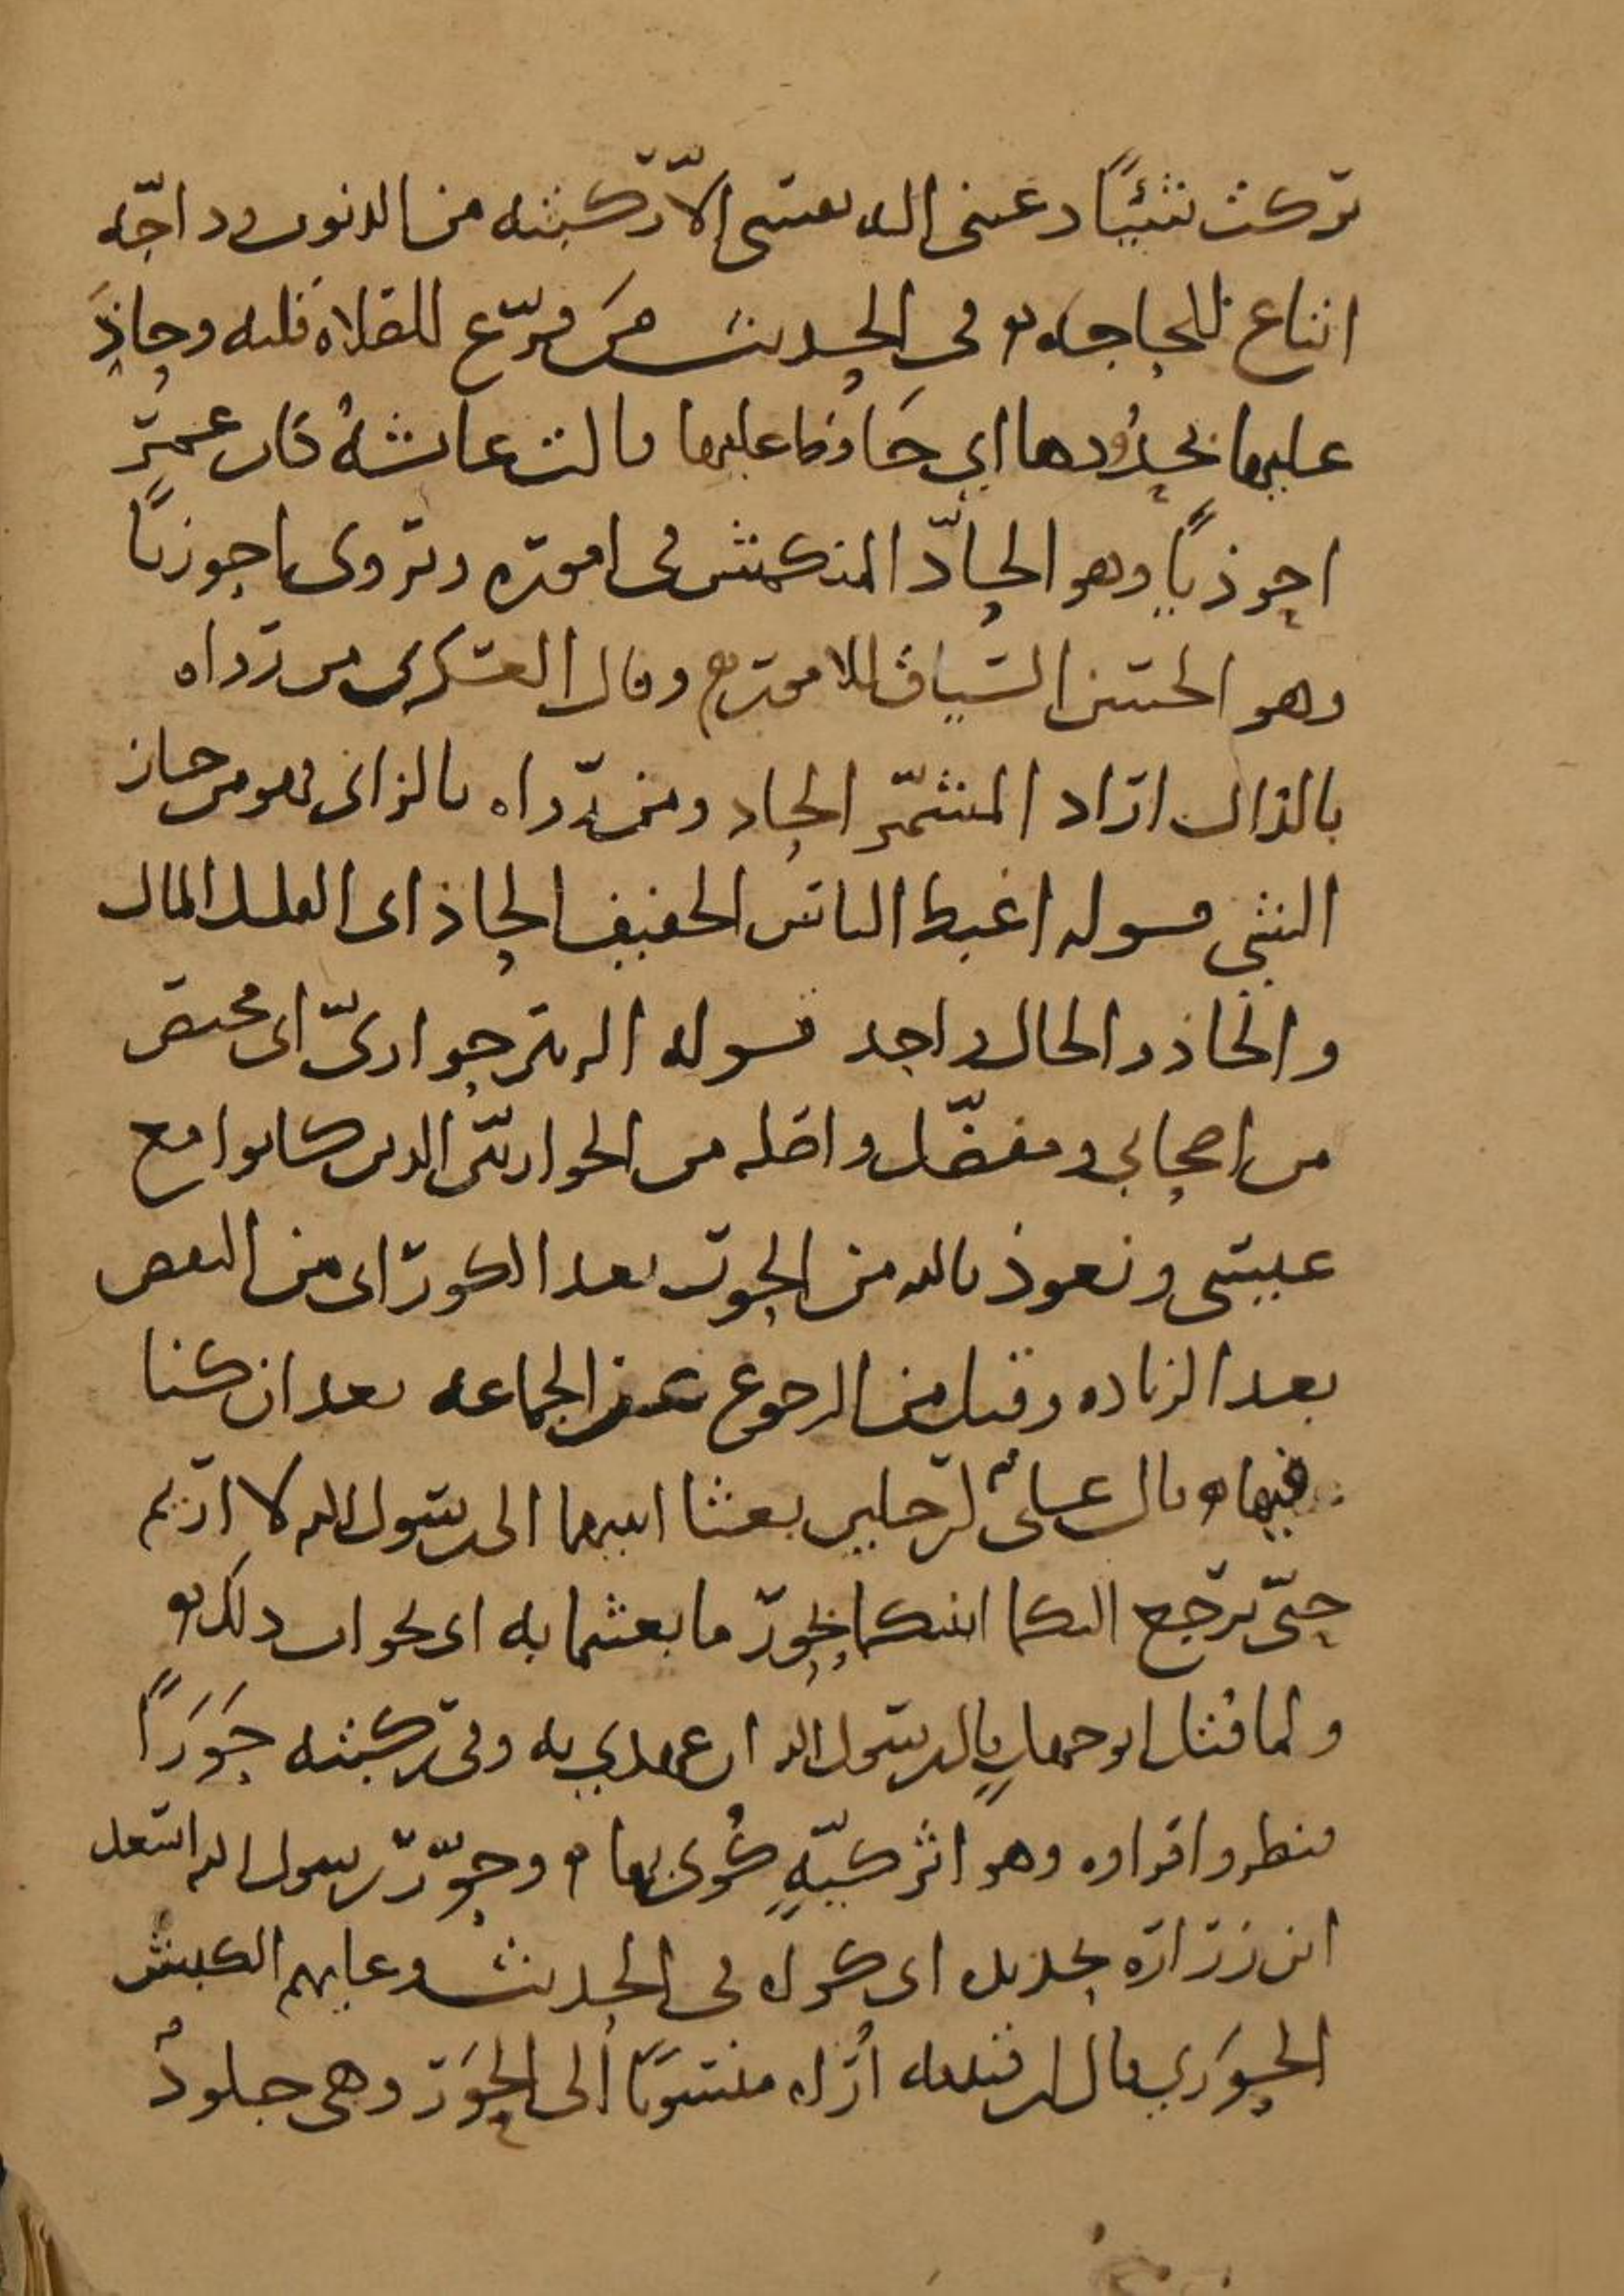 تركت شيئًا دعتنى اليه نفسى الّا ركبته من الذنوب وداجّه
اتباع للحاجه وفى الحديث من فرّع للصلاة قلبه وحاذَ
عليها بحدُودها اي حَافظ عليها قالت عائشهُ كان عمر
احوذيًا وهو الحادّ المنكمش فى اموره وتروى احوزيًا
وهو الحسن السّياق للامور وقال العسكرى من رواه
بالذال اراد المشمّر الجاد ومن رّواه بالزاى فهو من حاز
الشي قوله اغبط الناس الخفيف الحاذ اى القليل المال
والحاذ والحال واحد قوله الزبير حوارىّ اى مختص
من اصحابي ومفضّل واصله من الحواريّين الذين كانوا مع
عيسى ونعوذ بالله من الحور بعد الكور اى من النقص
بعد الزياده وقيل من الرجوع عن الجماعه بعد ان كنا
فيها قال علىّ لرجلين بعثا ابنيهما الى رسول الله لا اريم
حتّى يرجع اليكما ابنكما بحور ما بعثتما به اى بجواب ذلك
ولما قتل ابو جهل قال رسول الله ان عهدي به وفى ركبته حَوَرَاً
فنظروا فراوه وهو اثر كيّهٍ كُوى بها وحوّر رسول الله اسعد
ابن زرارة بحديده اى كواه فى الحديث وعليهم الكبش
الحوَري قال ابن قتيبه اُرَاه منسوبًا الى الحوَر وهى جلودٌ